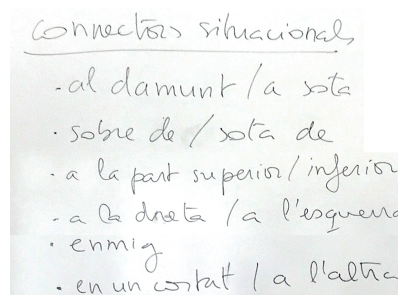 connectors situacionals
· al damunt / a sota
· sobre de / sota de
· a la part superior / inferior
· a la dreta / a l'esquerra
· enmig
· en un costat / a l'altra